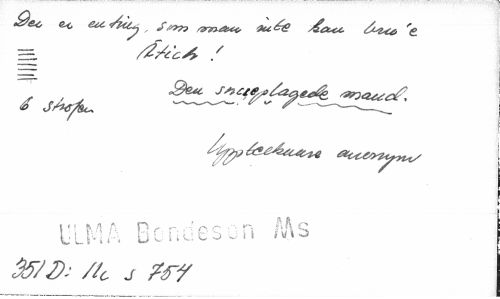 Der er en ting, som man inte kan bro'e
Ätich!
6 strofer
Den sneeplagede mand.
Upptecknare anonym
ULMA Bondeson Ms
351 D: 11c s 754